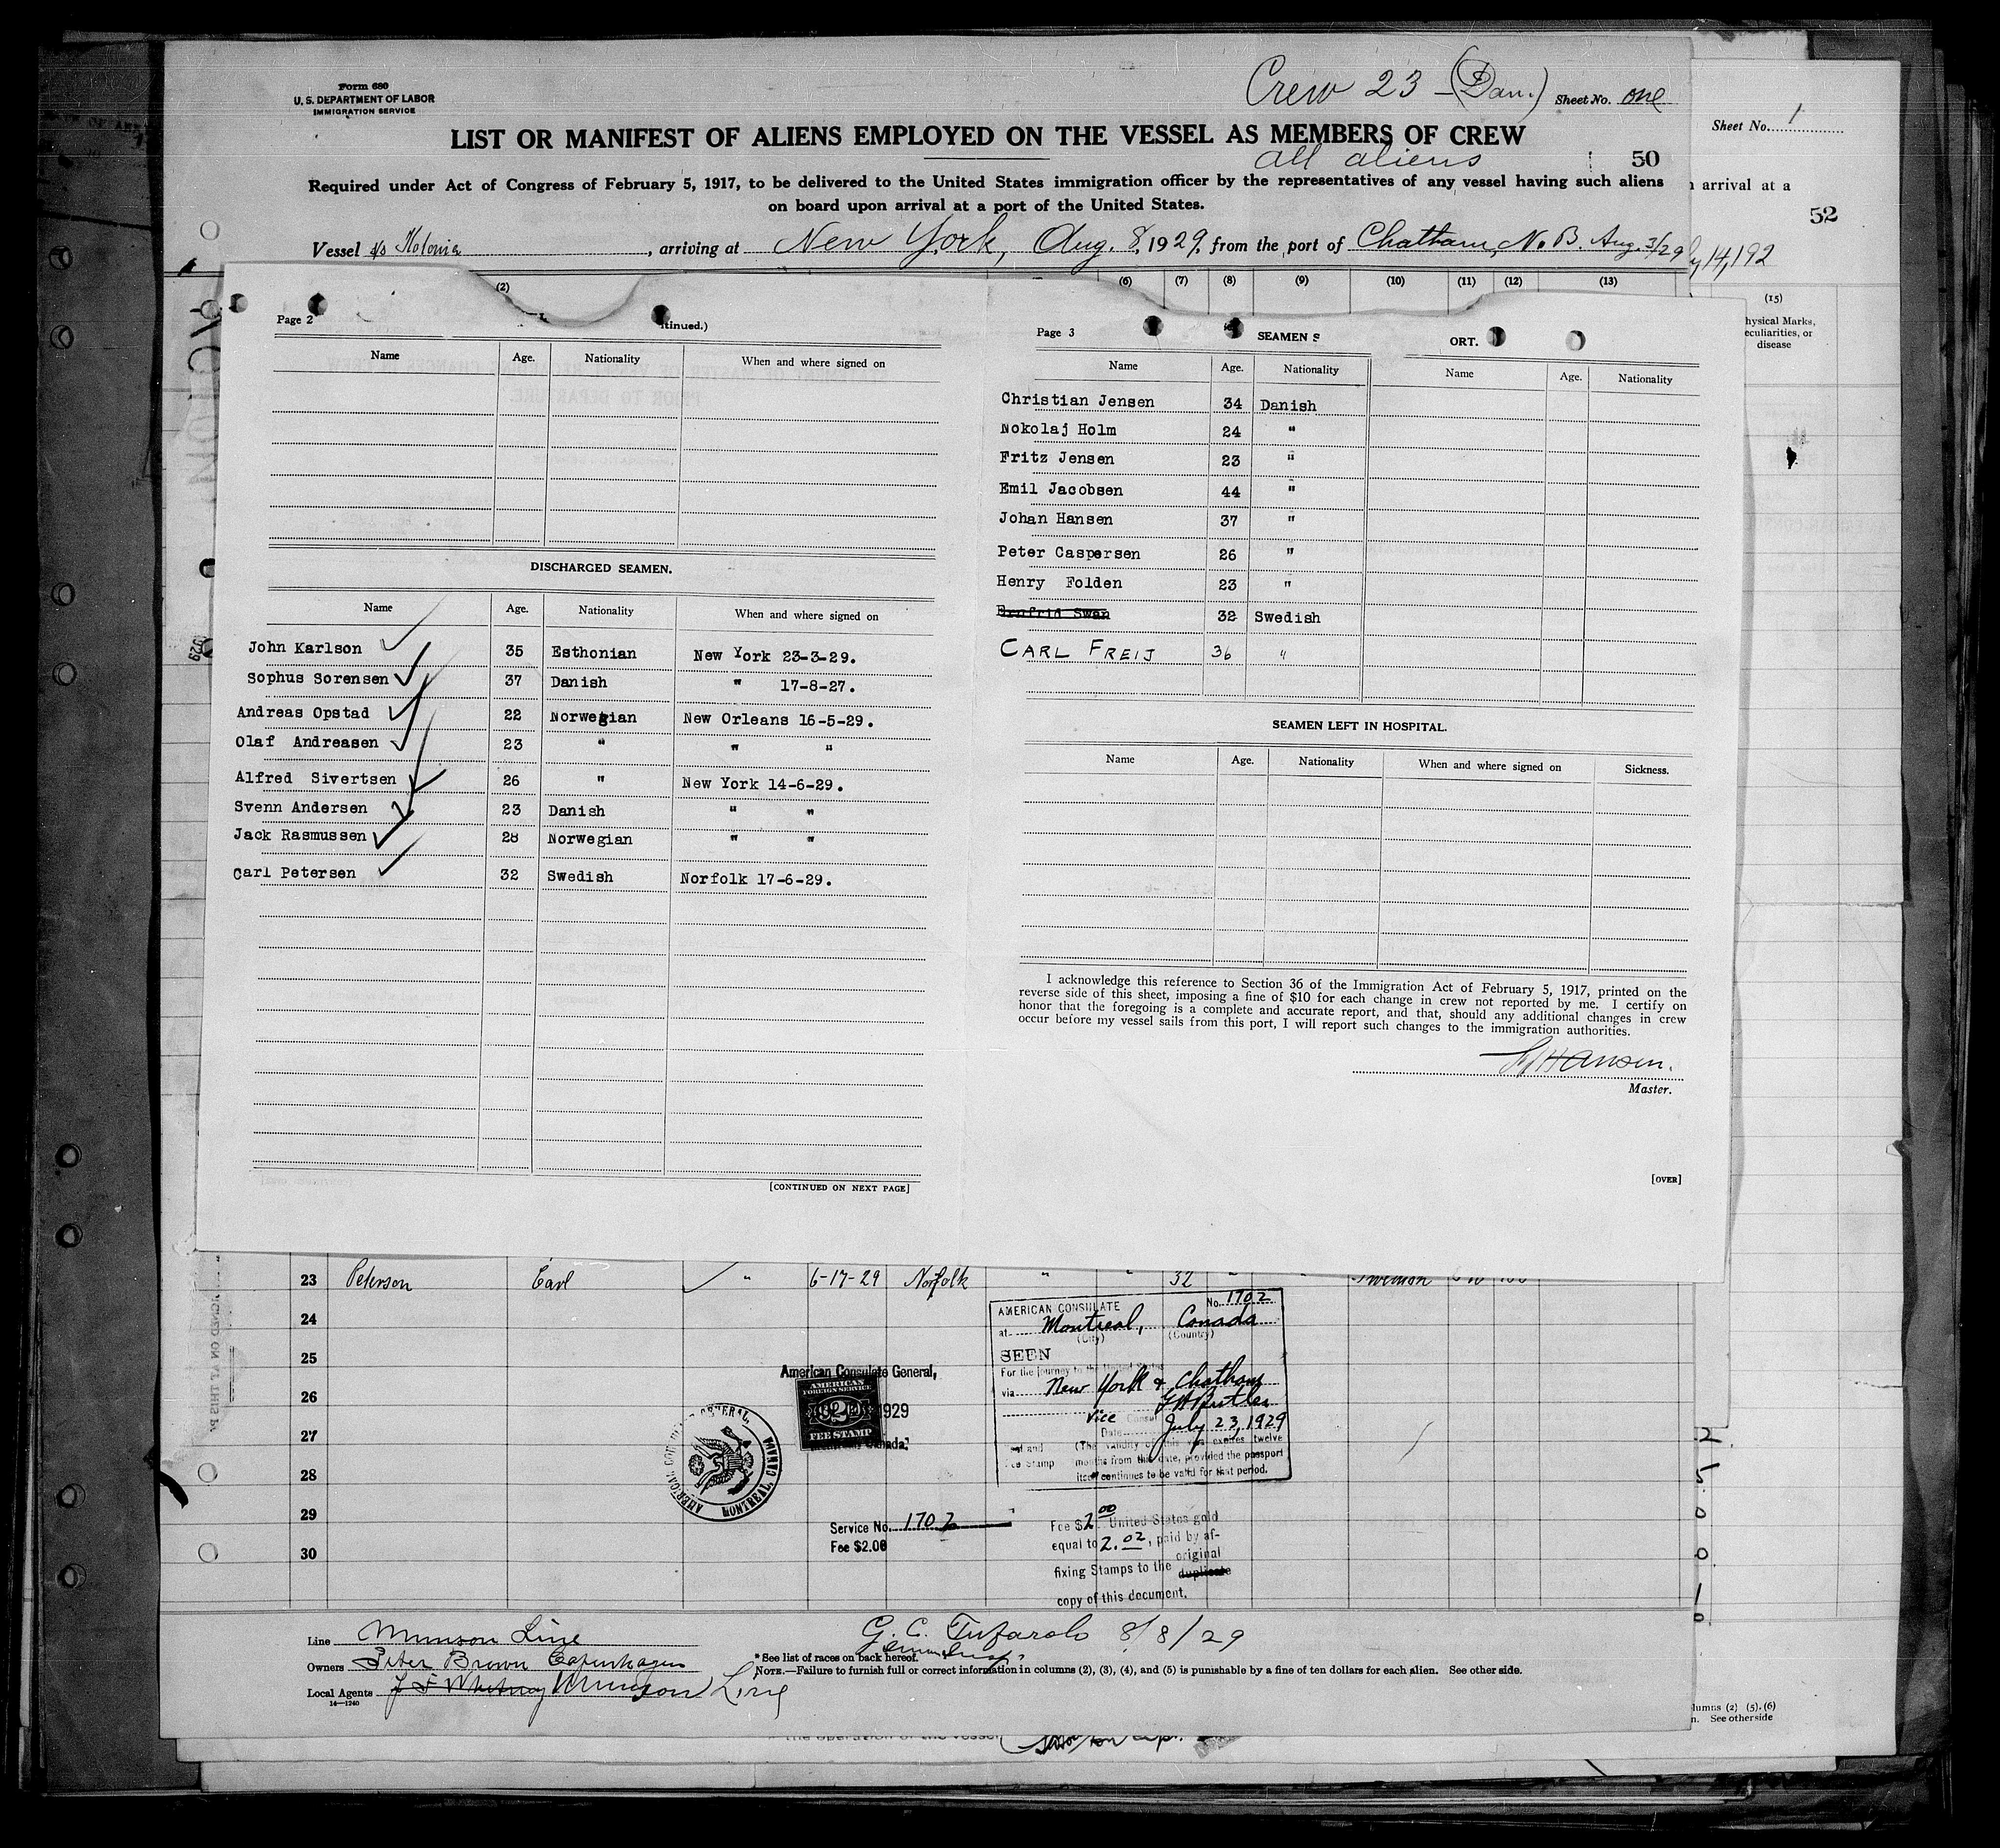 Form 680
U. S. DEPARTMENT OF LABOR
IMMIGRATION SERVICE
Crew 23 - (Dan.) Sheet No. one
LIST OR MANIFEST OF ALIENS EMPLOYED ON THE VESSEL AS MEMBERS OF CREW
all aliens
50
Required under Act of Congress of February 5, 1917, to be delivered to the United States immigration officer by the representatives of any vessel having such aliens
on board upon arrival at a port of the United States.
Vessel s/s , arriving at New York, Aug. 8, 1929, from the port of Chatham, N. B. Aug. 3/29
Sheet No. 1
arrival at a
52
14, 192
(15)
hysical Marks,
eculiarities, or
disease
(2) (6) (7) (8) (9) (10) (11) (12) (13)
Page 2
tinued.)
Name Age. Nationality When and where signed on
DISCHARGED SEAMEN.
Name Age. Nationality When and where signed on
John Karlson 35 Esthonian New York 23-3-29.
Sophus Sorensen 37 Danish " 17-8-27.
Andreas Opstad 22 Norwegian New Orleans 16-5-29.
Olaf Andreasen 23 " " "
Alfred Sivertsen 26 " New York 14-6-29.
Svenn Andersen 23 Danish " "
Jack Rasmussen 28 Norwegian " "
Carl Petersen 32 Swedish Norfolk 17-6-29.
[CONTINUED ON NEXT PAGE]
Page 3
SEAMEN S ORT.
Name Age. Nationality Name Age. Nationality
Christian Jensen 34 Danish
Nokolaj Holm 24 "
Fritz Jensen 23 "
Emil Jacobsen 44 "
Johan Hansen 37 "
Peter Caspersen 26 "
Henry Folden 23 "
Ernfrid Swan 32 Swedish
CARL FREIJ 36 "
SEAMEN LEFT IN HOSPITAL.
Name Age. Nationality When and where signed on Sickness.
I acknowledge this reference to Section 36 of the Immigration Act of February 5, 1917, printed on the
reverse side of this sheet, imposing a fine of $10 for each change in crew not reported by me. I certify on
honor that the foregoing is a complete and accurate report, and that, should any additional changes in crew
occur before my vessel sails from this port, I will report such changes to the immigration authorities.
Hansen.
Master.
[OVER]
23 Peterson Carl " 6-17-29 Norfolk " " 32 " "
24
25
26
27
28
29
30
AMERICAN CONSULATE No. 1702
at Montreal, Canada
(City) (Country)
SEEN
For the journey to the United States
via New York & Chatham
Vice Consul
Date July 23, 1929
(The validity of this visa expires twelve
months from this date, provided the passport
itself continues to be valid for that period.
American Consulate General,
AMERICAN
FOREIGN SERVICE
2
FEE STAMP
1929
AMERICAN CONSULATE GENERAL,
MONTREAL, CANADA
Service No. 1702
Fee $2.00
Fee $2.00 United States gold
equal to 2.02, paid by af-
fixing Stamps to the original
duplicate
copy of this document.
Line Munson Line
Owners Peter Brown Copenhagen
Local Agents J F Whitney Munson Line
14—1240
G. C. Tufarolo 8/8/29
* See list of races on back hereof.
NOTE.—Failure to furnish full or correct information in columns (2), (3), (4), and (5) is punishable by a fine of ten dollars for each alien. See other side.
lumns (2) (5). (6)
n. See otherside